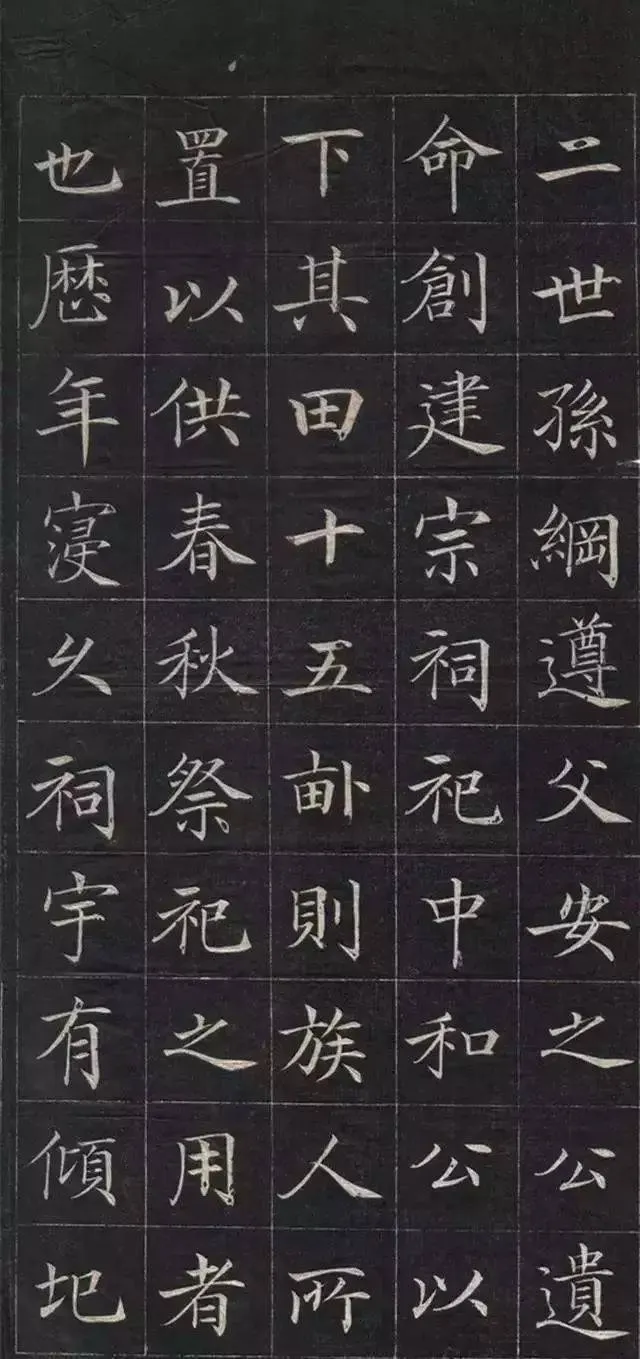 二世孫綱遵父安之公遺
命創建宗祠祀中和公以
下其田十五畝則族人所
置以供春秋祭祀之用者
也歷年寖久祠宇有傾圯